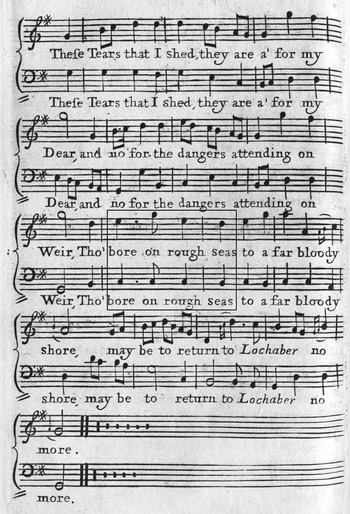 Theſe Tears that I ſhed, they are a' for my
Theſe Tears that I ſhed, they are a' for my
Dear, and no for the dangers attending on
Dear, and no for the dangers attending on
Weir, Tho' bore on rough seas to a far bloody
Weir, Tho' bore on rough seas to a far bloody
shore, may be to return to Lochaber no
shore, may be to return to Lochaber no
more.
more.